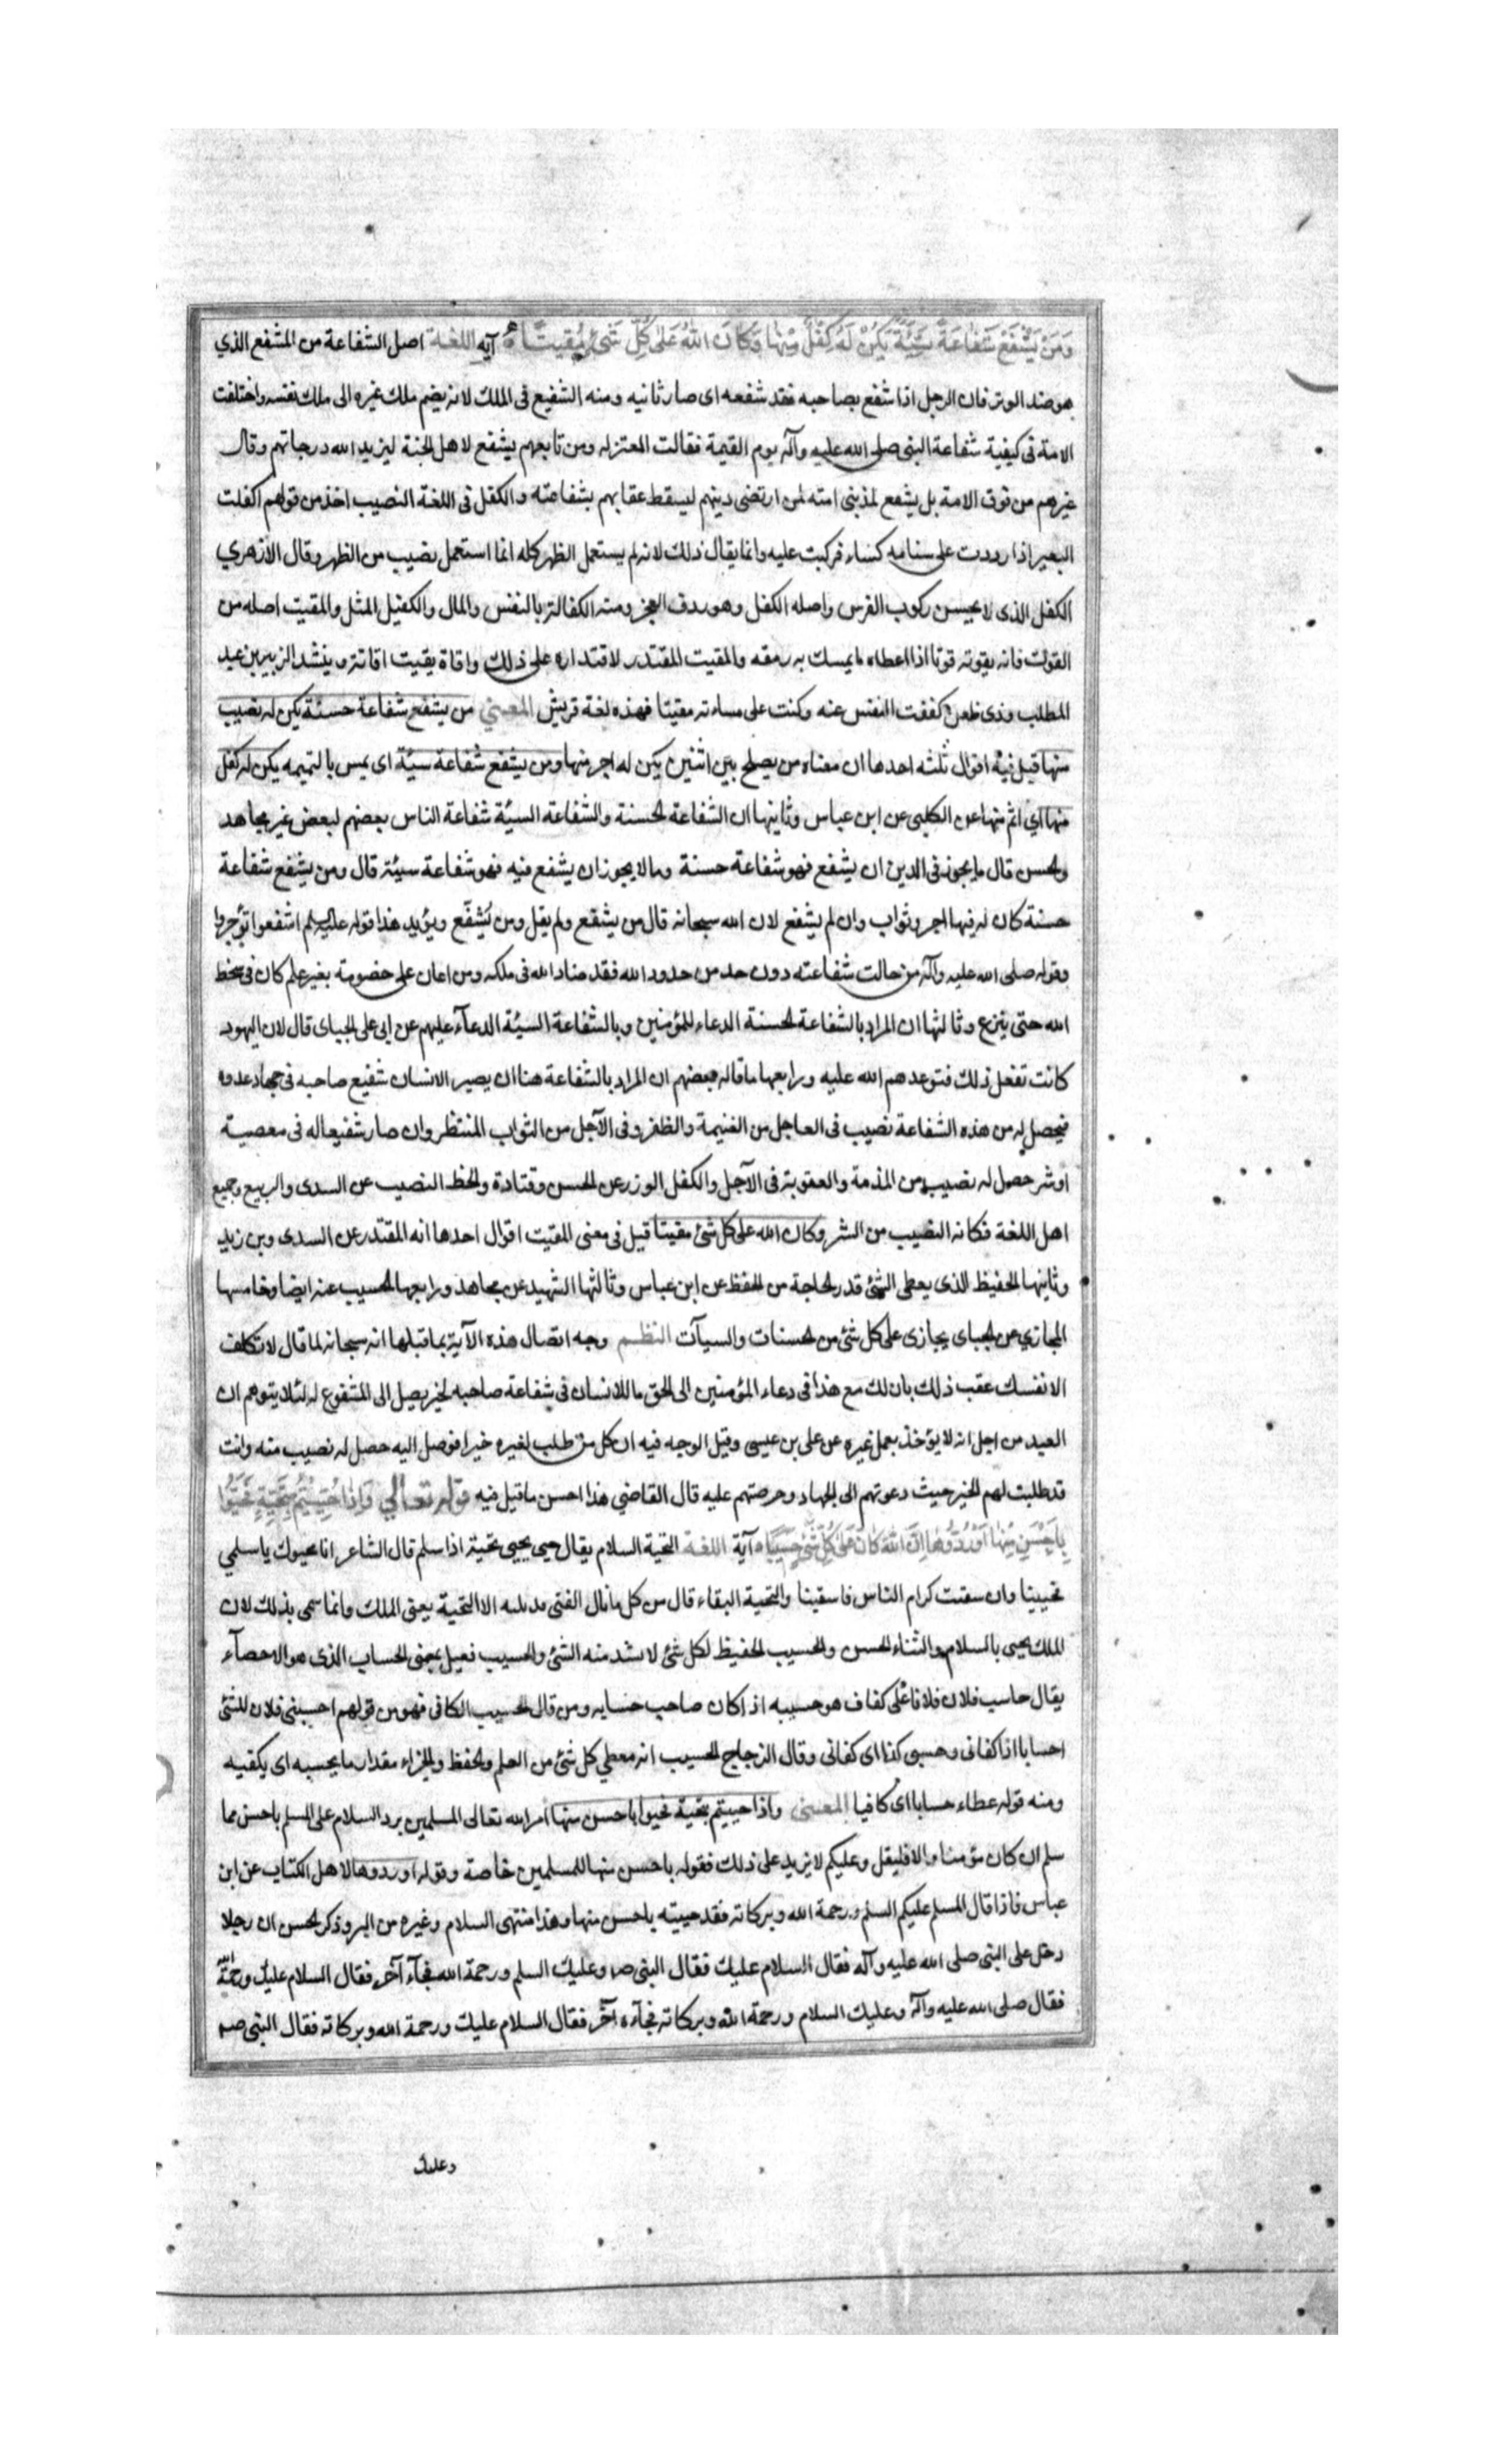 وَمَنْ يَشْفَعْ شَفَاعَةً سَيِّئَةً يَكُنْ لَهُ كِفْلٌ مِنْهَا وَكَانَ اللهُ عَلَى كُلِّ شَيْءٍ مُقِيتًا آية اللغة اصل الشفاعة من الشفع الذي
هو ضد الوتر فان الرجل اذا شفع بصاحبه فقد شفعه اى صار ثانيه ومنه الشفيع فى الملك لانه يضم ملك غيره الى ملك نفسه واختلفت
الامة فى كيفية شفاعة النبى صلى الله عليه وآله يوم القيمة فقالت المعتزله ومن تابعهم يشفع لاهل الجنة ليزيد الله درجاتهم وقال
غيرهم من فرق الامة بل يشفع لمذنبى امته لمن ارتضى دينهم ليسقط عقابهم بشفاعته والكفل فى اللغة النصيب اخذ من قولهم اكفلت
البعير اذا رددت على سنامه كساء فركبت عليه وانما يقال ذلك لانه لم يستعمل الظهر كله انما استعمل نصيب من الظهر وقال الازهري
الكفل الذى لا يحسن ركوب الفرس واصله الكفل وهو ردف العجز ومنه الكفالة بالنفس والمال والكفيل المثل والمقيت اصله من
القوت فانه يقوته قوتا اذا اعطاه ما يمسك به رمقه والمقيت المقتدر لاقتداره على ذلك واقاة يقيت اقاتة وينشد الزبير بن عبد
المطلب وذى ظعن كففت النفس عنه وكنت على مساءته مقيتا فهذه لغة قريش المعنى من يشفع شفاعة حسنة يكن له نصيب
منها قيل فيه اقوال ثلثه احدها ان معناه من يصلح بين اثنين يكن له اجر منها ومن يشفع شفاعة سيئة اى يمس بالنميمه يكن له كفل
منها اي اثم منها عن الكلبى عن ابن عباس وثانيها ان الشفاعة الحسنة والشفاعة السيئة شفاعة الناس بعضهم لبعض غير مجاهد
والحسن قال ما يجوز فى الدين ان يشفع فهو شفاعة حسنة وما لا يجوز ان يشفع فيه فهو شفاعة سيئة قال ومن يشفع شفاعة
حسنة كان له فيها اجر وثواب وان لم يشفع لان الله سبحانه قال من يشفع ولم يقل ومن يُشفّع ويؤيد هذا قوله عليه السلم اشفعوا تؤجروا
وقوله صلى الله عليه وآله من حالت شفاعته دون حد من حدود الله فقد ضاد الله فى ملكه ومن اعان على خصومة بغير علم كان فى سخط
الله حتى ينزع وثالثها ان المراد بالشفاعة الحسنة الدعاء للمؤمنين وبالشفاعة السيئة الدعآء عليهم عن ابى على الجباى قال لان اليهود
كانت تفعل ذلك فتوعدهم الله عليه ورابعها ما قاله بعضهم ان المراد بالشفاعة هنا ان يصير الانسان شفيع صاحبه فى جهاد عدوه
فيحصل له من هذه الشفاعة نصيب فى العاجل من الغنيمة والظفر وفى الآجل من الثواب المنتظر وان صار شفيعا له فى معصية
او شر حصل له نصيب من المذمة والعقوبة فى الآجل والكفل الوزر عن الحسن وقتادة والحظ النصيب عن السدى والربيع وجميع
اهل اللغة فكانه النصيب من الشر وكان الله على كل شئ مقيتا قيل فى معنى المقيت اقوال احدها انه المقتدر عن السدى وبن زيد
وثانيها الحفيظ الذى يعطى الشئ قدر الحاجة من الحفظ عن ابن عباس وثالثها الشهيد عن مجاهد ورابعها الحسيب عنه ايضا وخامسها
المجازي عن الجباى يجازى على كل شئ من الحسنات والسيآت النظم وجه اتصال هذه الآية بما قبلها انه سبحانه لما قال لا تكلف
الا نفسك عقب ذلك بان لك مع هذا فى دعاء المؤمنين الى الحق ما للانسان فى شفاعة صاحبه لخير يصل الى المشفوع له لئلا يتوهم ان
العبد من اجل انه لا يؤخذ بعمل غيره عن على بن عيسى وقيل الوجه فيه ان كل من طلب لغيره خيرا فوصل اليه حصل له نصيب منه وانت
قد طلبت لهم الخير حيث دعوتهم الى الجهاد وحرصتهم عليه قال القاضي هذا احسن ما قيل فيه قوله تعالى وَإِذَا حُيِّيتُمْ بِتَحِيَّةٍ فَحَيُّوا
بِأَحْسَنَ مِنْهَا أَوْ رُدُّوهَا إِنَّ اللهَ كَانَ عَلَى كُلِّ شَيْءٍ حَسِيبًا آية اللغة التحية السلام يقال حيى يحيى تحية اذا سلم قال الشاعر انا محيوك يا سلمي
فحيينا وان سقيت كرام الناس فاسقينا والتحية البقاء قال من كل ما نال الفتى قد نلته الا التحية يعنى الملك وانما سمى بذلك لان
الملك يحيى بالسلام والثناء الحسن والحسيب الحفيظ لكل شئ لا يشذ منه الشئ والحسيب فعيل بمعنى الحساب الذى هو الاحصآء
يقال حاسب فلان فلانا على كفاف هو حسيبه اذا كان صاحب حسابه ومن قال الحسيب الكافى فهو من قولهم احسبنى فلان للشئ
احسابا اذا كفانى وحسبى كذا اى كفانى وقال الزجاج الحسيب انه معطي كل شئ من العلم والحفظ والجزاء مقدار ما يحسبه اى يكفيه
ومنه قوله عطاء حسابا اى كافيا المعنى واذا حييتم بتحية فحيوا باحسن منها امر الله تعالى المسلمين برد السلام على المسلم باحسن مما
سلم ان كان مؤمنا والا فليقل وعليكم لا يزيد على ذلك فقوله باحسن منها للمسلمين خاصة وقوله او ردوها لاهل الكتاب عن ابن
عباس فاذا قال المسلم عليكم السلم ورحمة الله وبركاته فقد حييته باحسن منها وهذا منتهى السلام وغيره من البر وذكر الحسن ان رجلا
دخل على النبى صلى الله عليه وآله فقال السلام عليك فقال النبى صم وعليك السلم ورحمة الله فجآء آخر فقال السلام عليك ورحمة الله
فقال صلى الله عليه وآله وعليك السلام ورحمة الله وبركاته فجآءه آخر فقال السلام عليك ورحمة الله وبركاته فقال النبى صم
وعليك